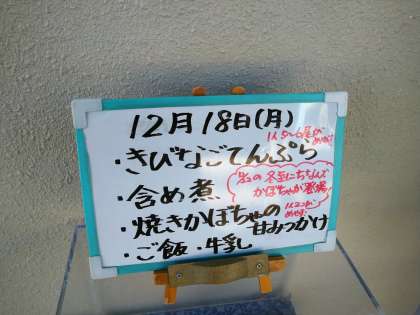 12月18日(月)
1人5~6尾が
めやす!
・きびなごてんぷら
・含め煮
22の冬至にちなんで
かぼちゃが登場!
・焼きかぼちゃの
甘みつかけ
1人2コが
めやす
・ご飯・牛乳